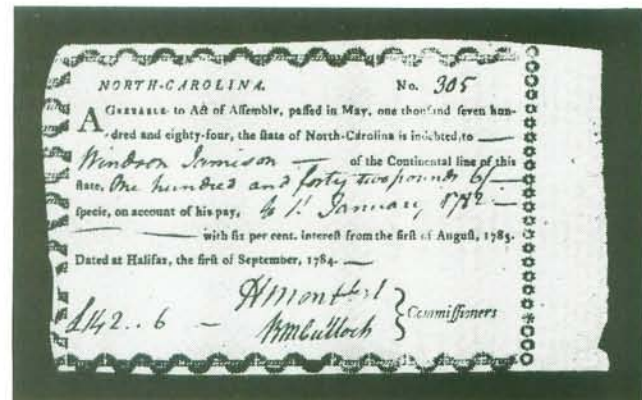 NORTH-CAROLINA. No. 305
AGREEABLE to Act of Assembly, passed in May, one thousand seven hun-
dred and eighty-four, the state of North-Carolina is indebted, to
Windson Jamison of the Continental line of this
state, One hundred and forty two pounds 6/
specie, on account of his pay, to 1st January 1782
with six per cent. interest from the first of August, 1783.
Dated at Halifax, the first of September, 1784.
HMontfort
£142..6 BMcCulloch
Commissioners